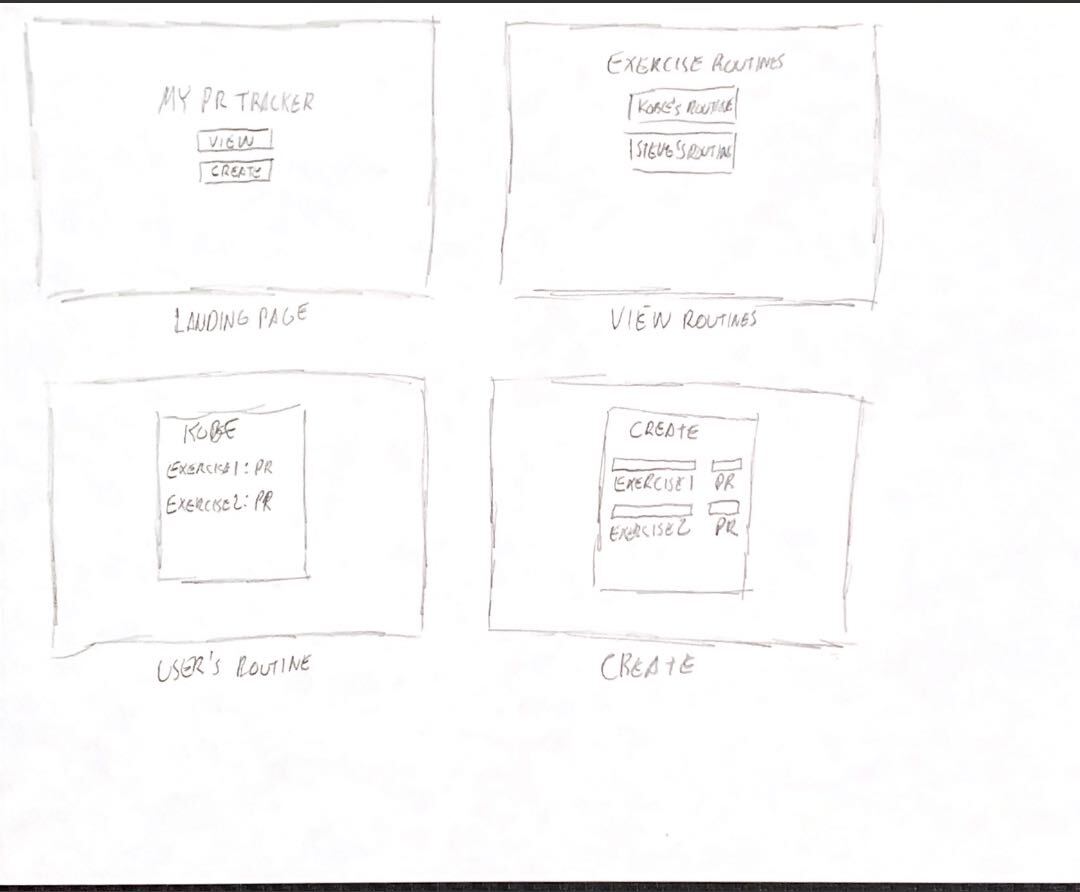 MY PR TRACKER
VIEW
CREATE
LANDING PAGE
EXERCISE ROUTINES
KOBE'S ROUTINE
STEVE'S ROUTINE
VIEW ROUTINES
KOBE
EXERCISE 1: PR
EXERCISE 2: PR
USER'S ROUTINE
CREATE
EXERCISE 1 PR
EXERCISE 2 PR
CREATE